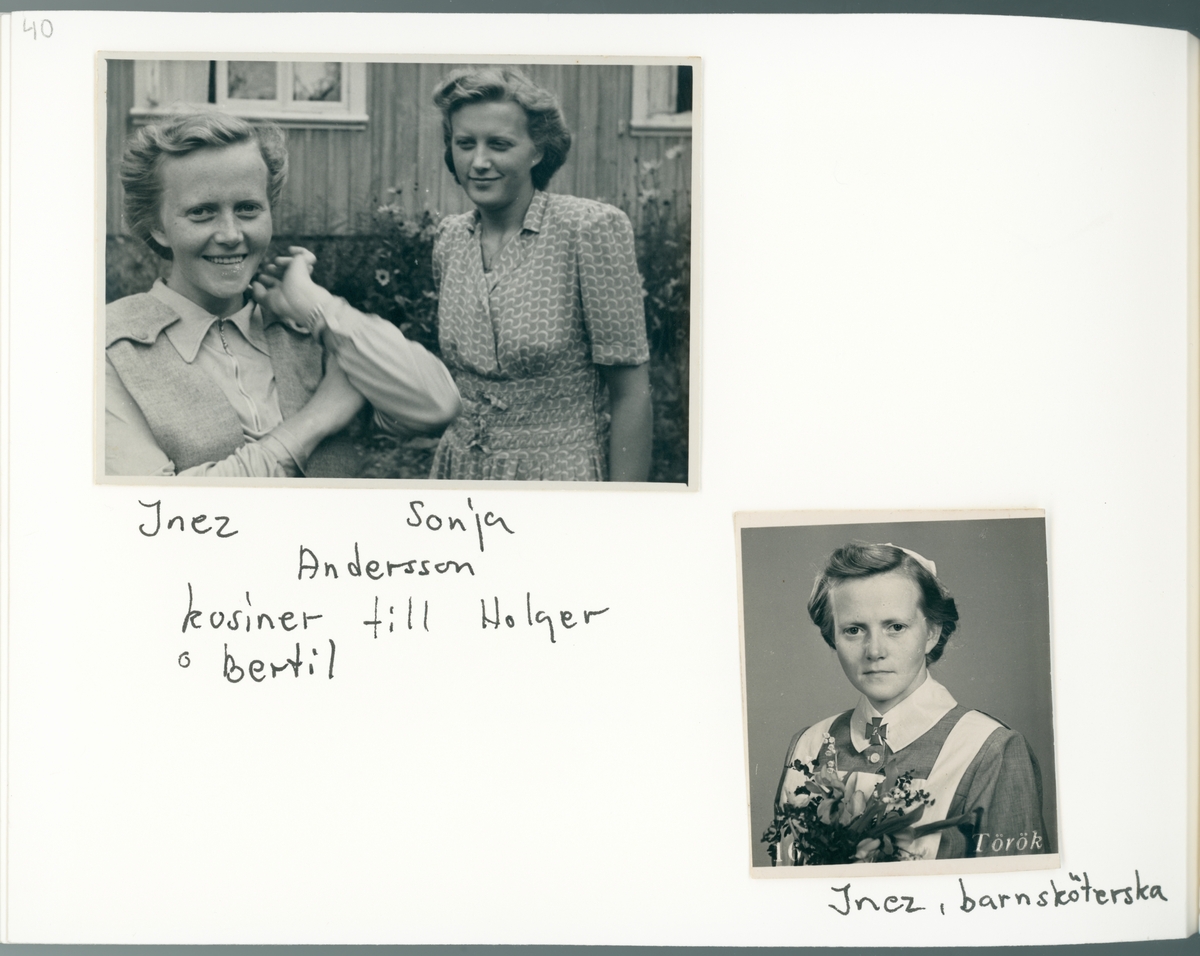 40
Inez Sonja
Andersson
kosiner till Holger
o Bertil
10
Török
Inez, barnsköterska